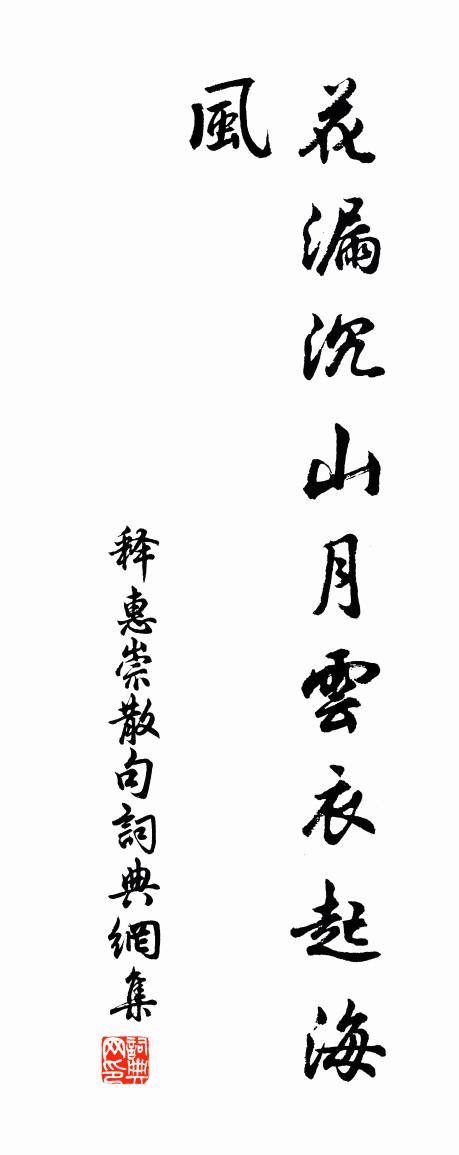 花漏沉山月雲衣起海
風
释惠崇散句詞典網集
詞典
网印